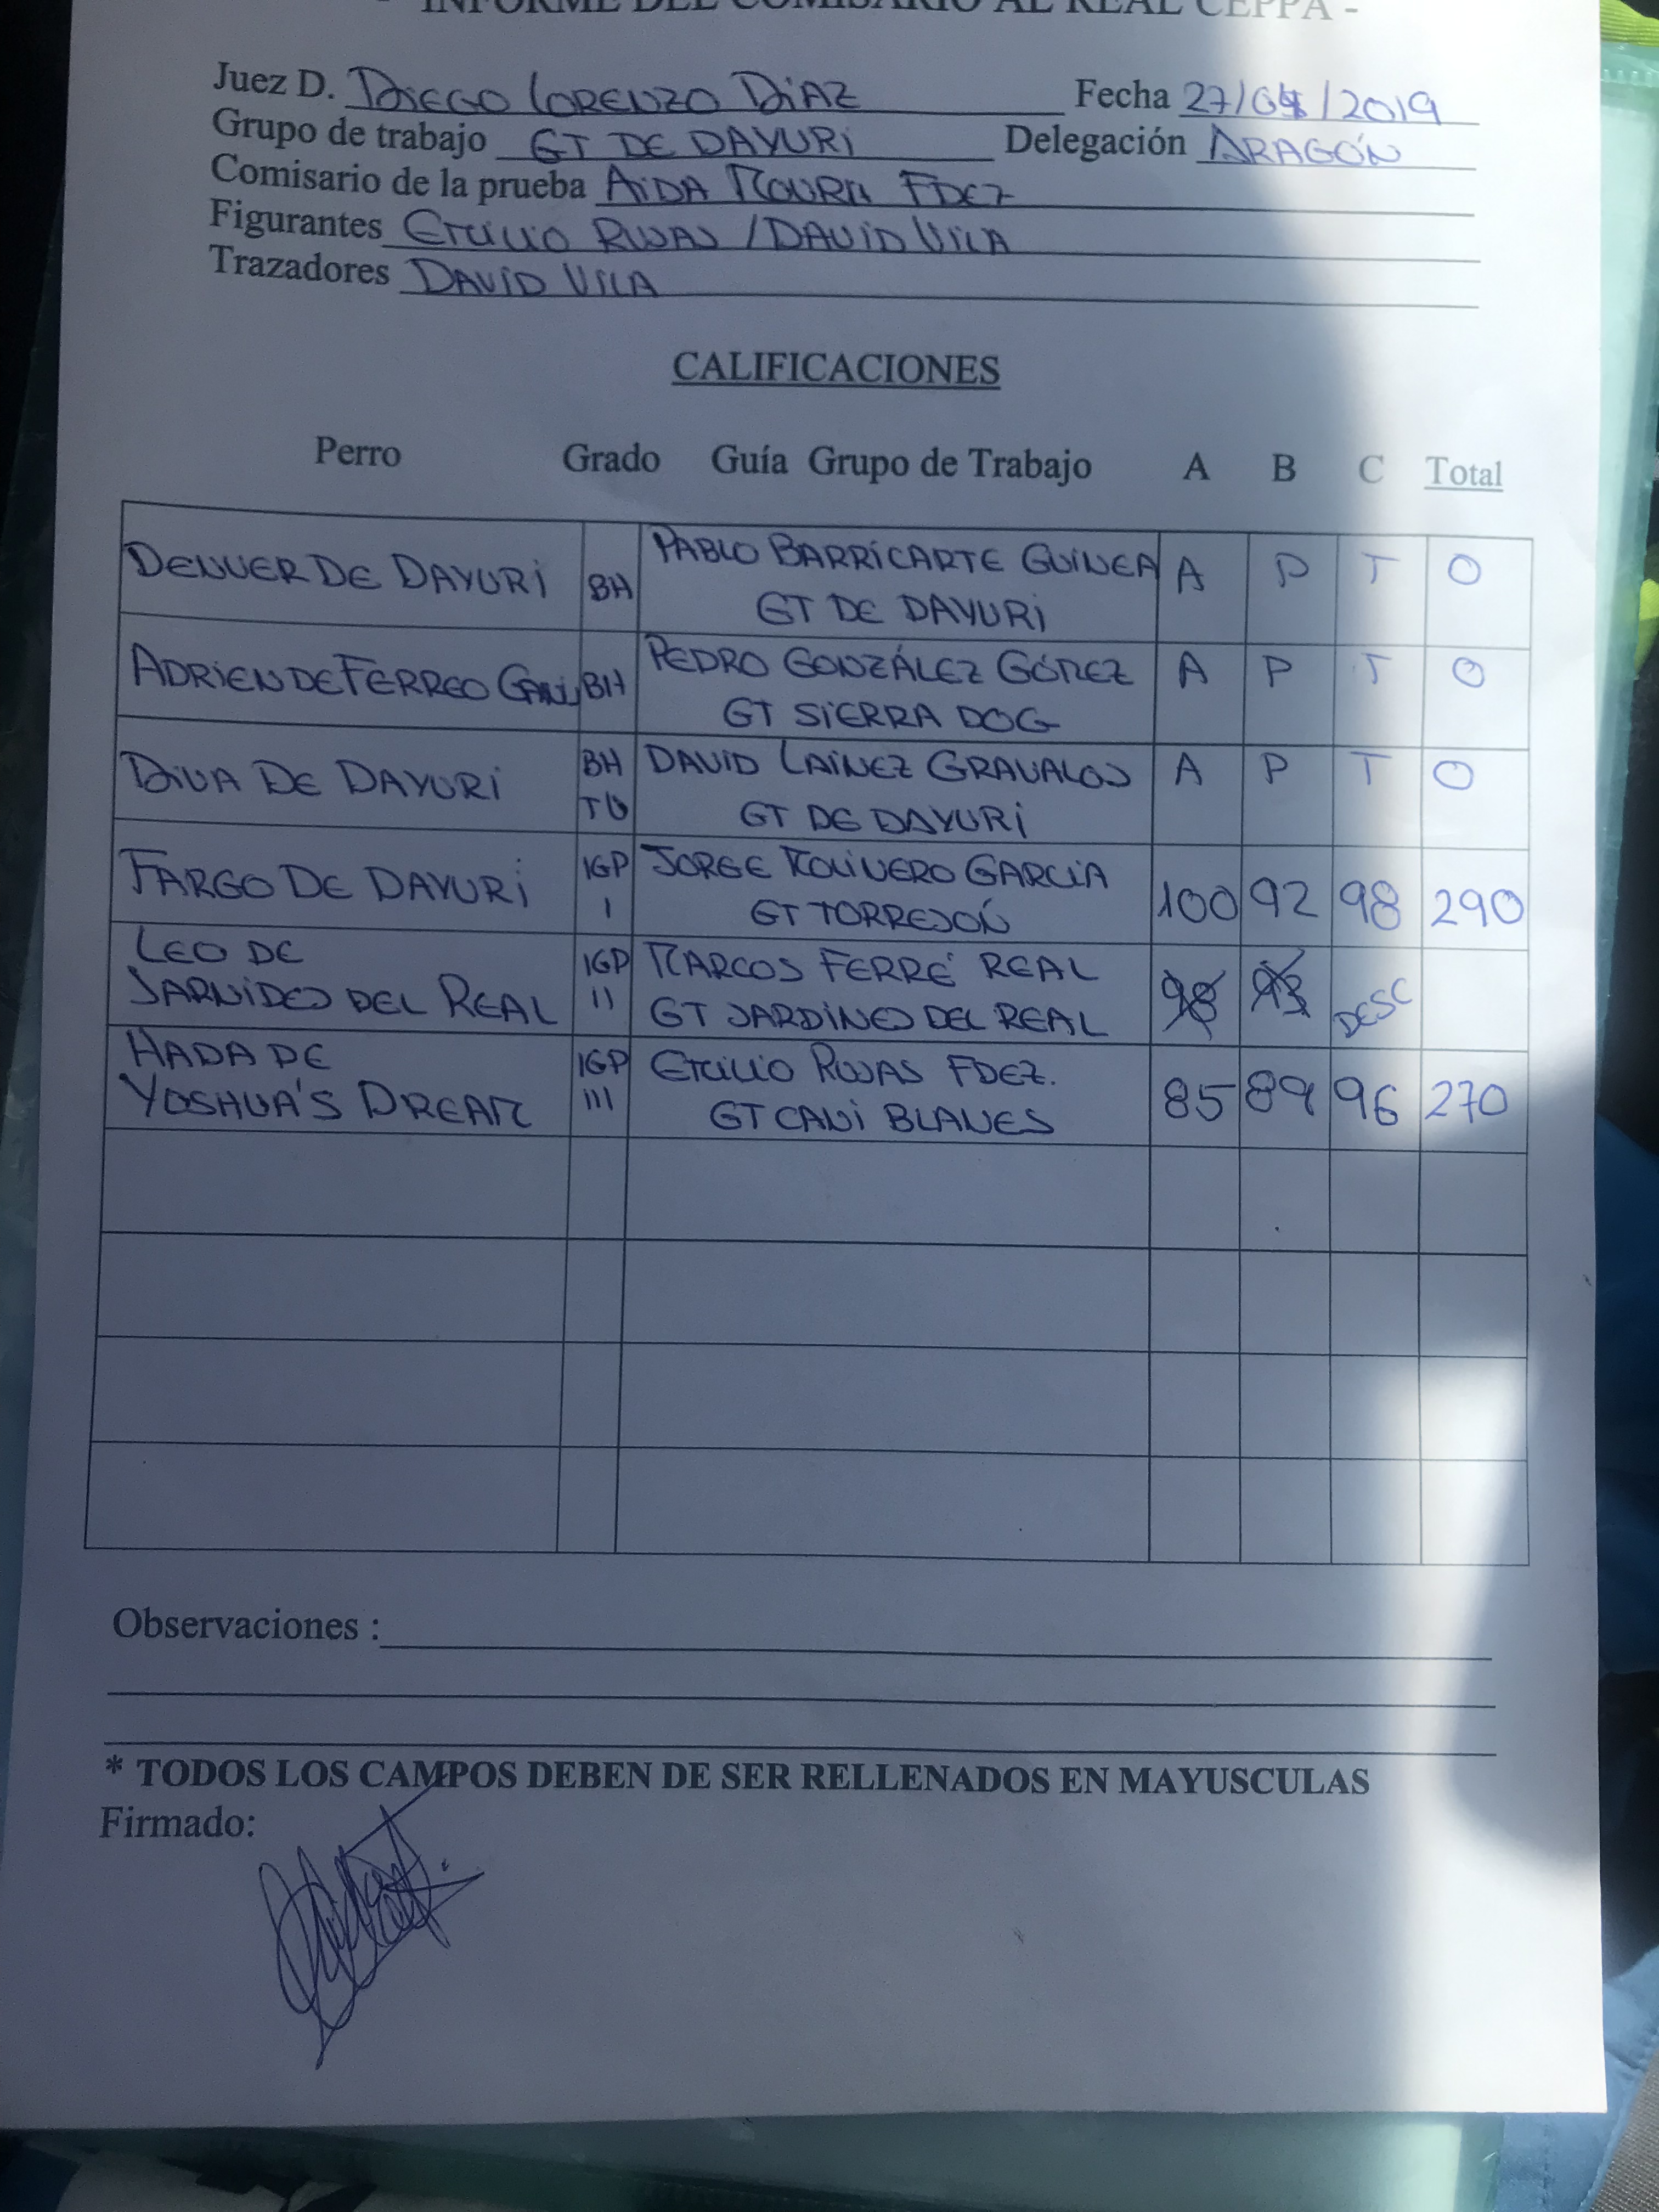 - INFORME DEL COMISARIO AL REAL CEPPA -
Juez D. DIEGO LORENZO DIAZ Fecha 27/04/2019
Grupo de trabajo GT DE DAYURI Delegación ARAGÓN
Comisario de la prueba AIDA MOURA FDEZ
Figurantes EMILIO ROJAS / DAVID VILA
Trazadores DAVID VILA
CALIFICACIONES
Perro Grado Guía Grupo de Trabajo A B C Total
DENVER DE DAYURI BH PABLO BARRICARTE GUINEA A P T O
GT DE DAYURI
ADRIEN DE FERREO BH PEDRO GONZÁLEZ GÓMEZ A P T O
GT SIERRA DOG
DIVA DE DAYURI BH DAVID LAINEZ GRAVALOS A P T O
GT DE DAYURI
FARGO DE DAYURI IGP I JORGE MOLINERO GARCIA 100 92 98 290
GT TORREJÓN
LEO DE IGP II MARCOS FERRÉ REAL 98 93 DESC
JARNIDES DEL REAL GT JARDINES DEL REAL
HADA DE IGP III EMILIO ROJAS FDEZ. 85 89 96 270
YOSHUA'S DREAM GT CANI BLANES
Observaciones :
* TODOS LOS CAMPOS DEBEN DE SER RELLENADOS EN MAYUSCULAS
Firmado: